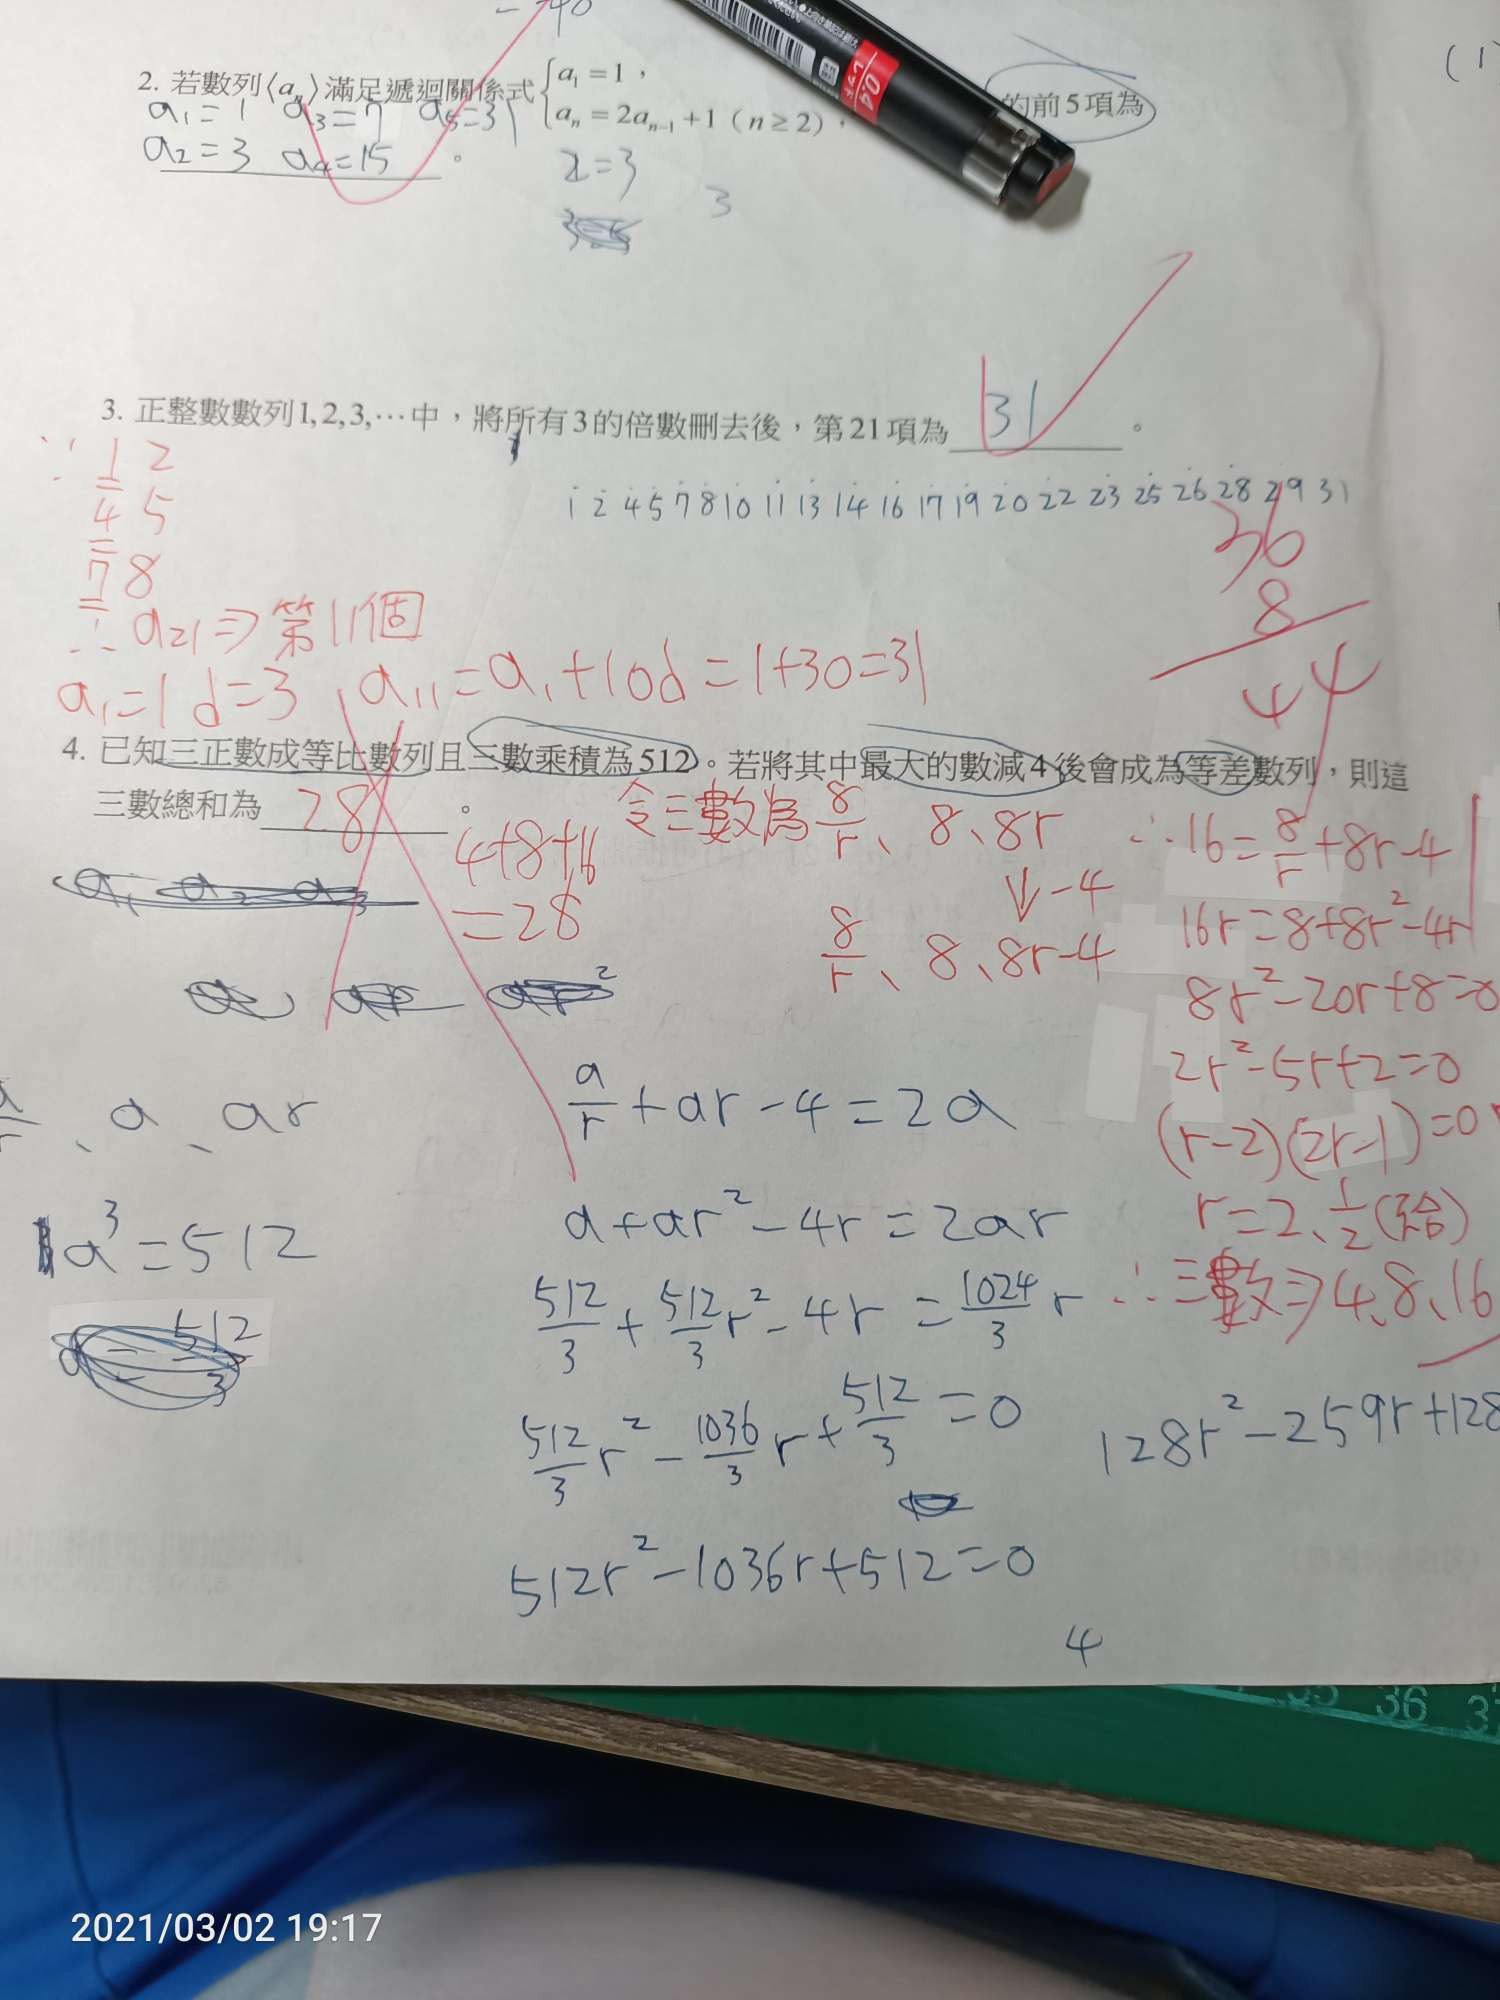 -40
(1
2. 若數列⟨aₙ⟩滿足遞迴關係式 { a₁ = 1，
aₙ = 2aₙ₋₁ + 1 ( n ≥ 2 )， 的前5項為
a₁=1 a₃=7 a₅=31
a₂=3 a₄=15 。
x=3
3
0.4
レッド
3. 正整數數列1, 2, 3, ⋯ 中，將所有3的倍數刪去後，第21項為 31 。
1 2 4 5 7 8 10 11 13 14 16 17 19 20 22 23 25 26 28 29 31
∵ 1 2
4 5
7 8
∴ a₂₁⇒第11個
a₁=1 d=3 , a₁₁=a₁+10d=1+30=31
36
8
44
4. 已知三正數成等比數列且三數乘積為512。若將其中最大的數減4後會成為等差數列，則這
三數總和為 28 。
4+8+16
=28
令三數為 8/r、8、8r
↓-4
8/r、8、8r-4
∴16=8/r+8r-4
16r=8+8r²-4r
8r²-20r+8=0
2r²-5r+2=0
(r-2)(2r-1)=0
r=2、1/2(不合)
∴三數⇒4、8、16
a₁ a₂ a₃
a/r、a、ar
a³=512
a/r+ar-4=2a
a+ar²-4r=2ar
512/3+512/3r²-4r=1024/3r
512/3r²-1036/3r+512/3=0
512r²-1036r+512=0
128r²-259r+128
4
35 36 37
2021/03/02 19:17